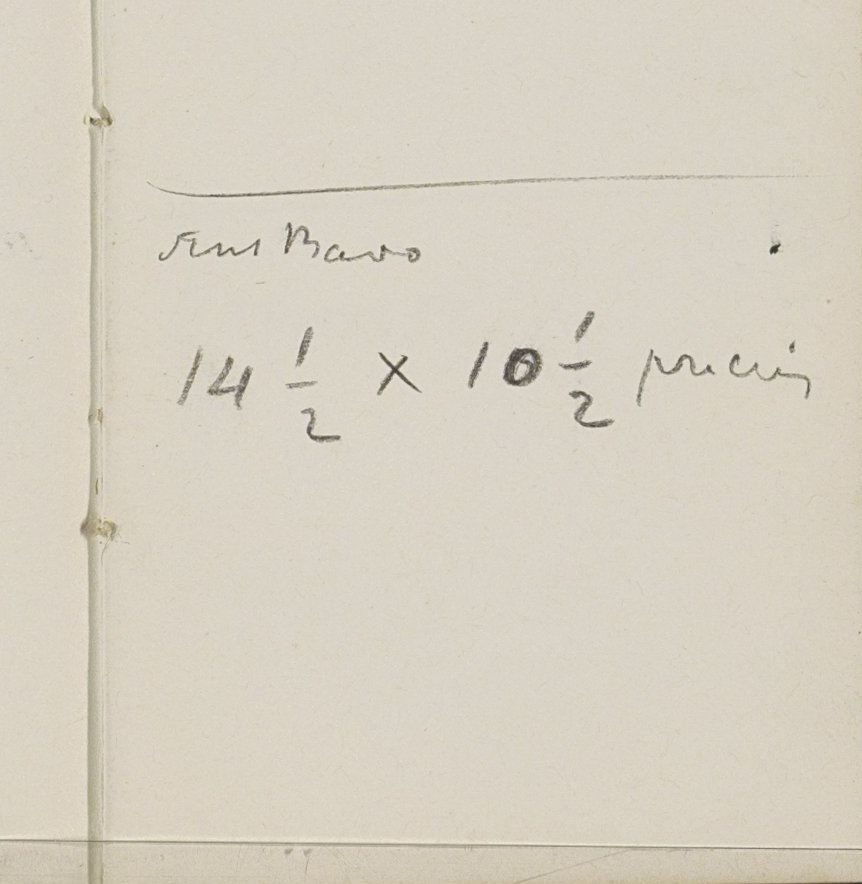 Sint Bavo
14 1/2 × 10 1/2 precies